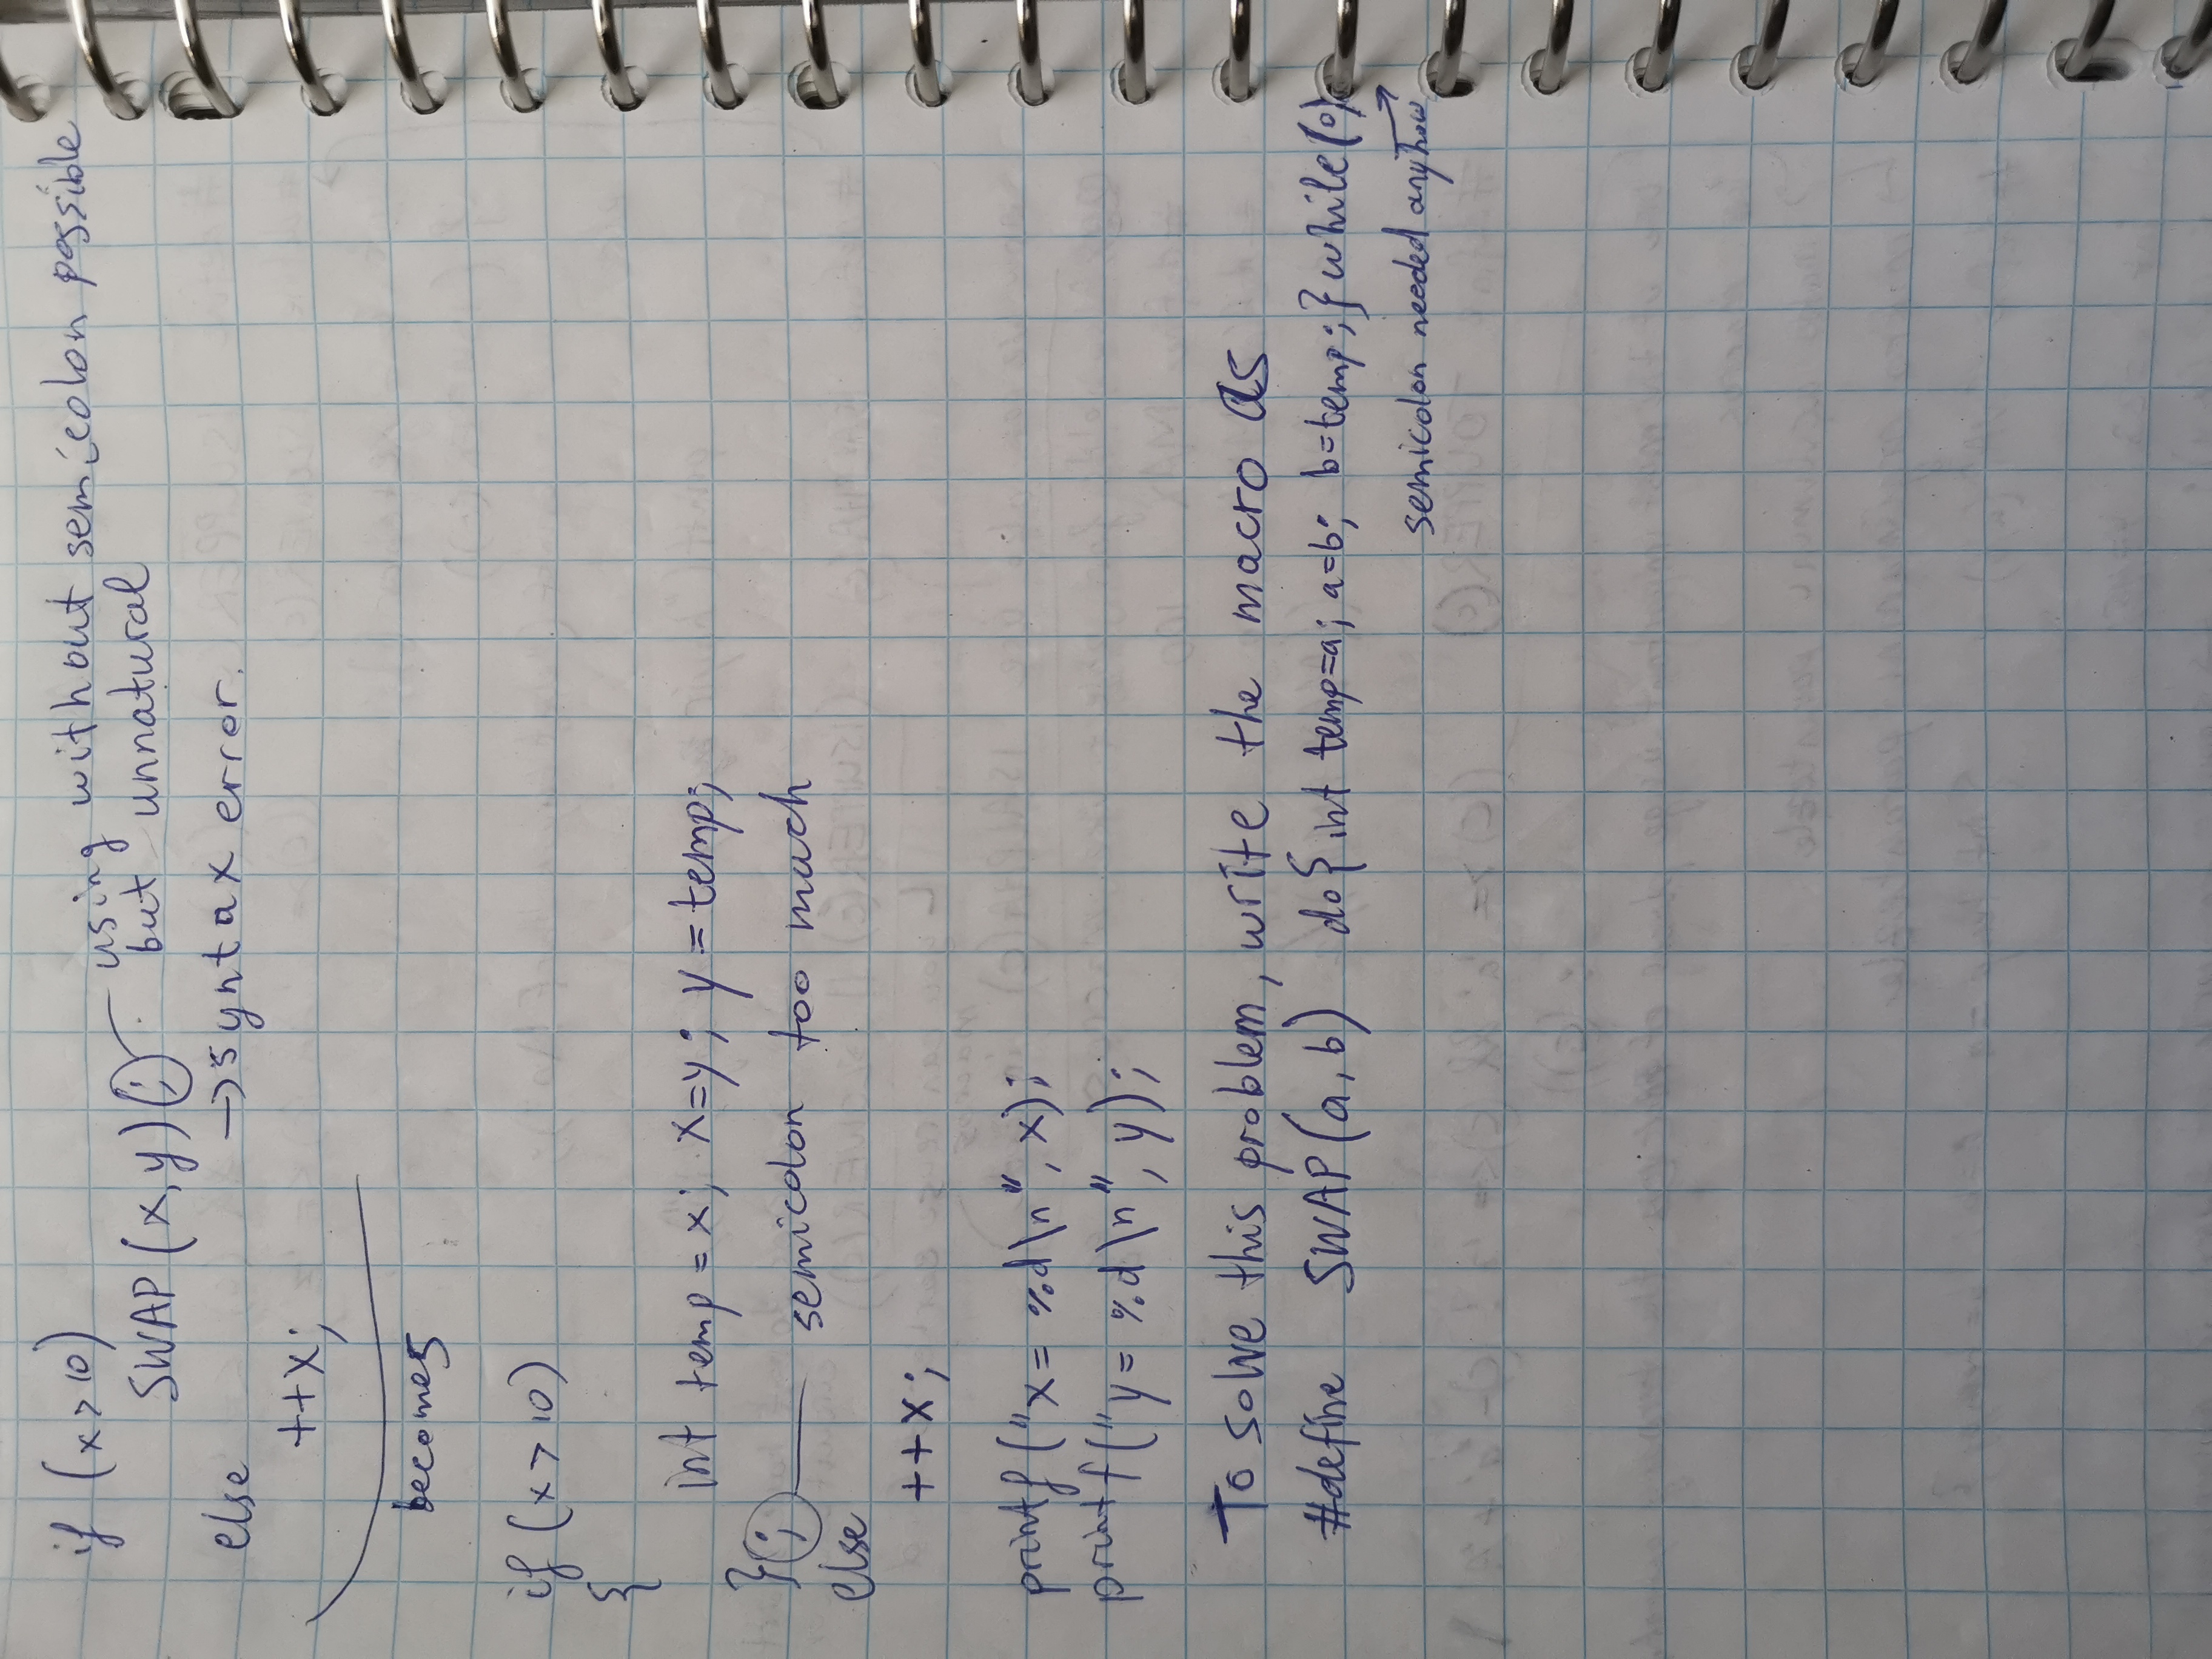 if (x>10)
SWAP(x,y); using without semicolon possible
but unnatural
else →syntax error.
++x;
becomes
if (x>10)
{
int temp=x; x=y; y=temp;
}; semicolon too much
else
++x;
printf("x= %d\n", x);
printf("y= %d\n", y);
To solve this problem, write the macro as
#define SWAP(a,b) do{int temp=a; a=b; b=temp;}while(0)
semicolon needed anyhow